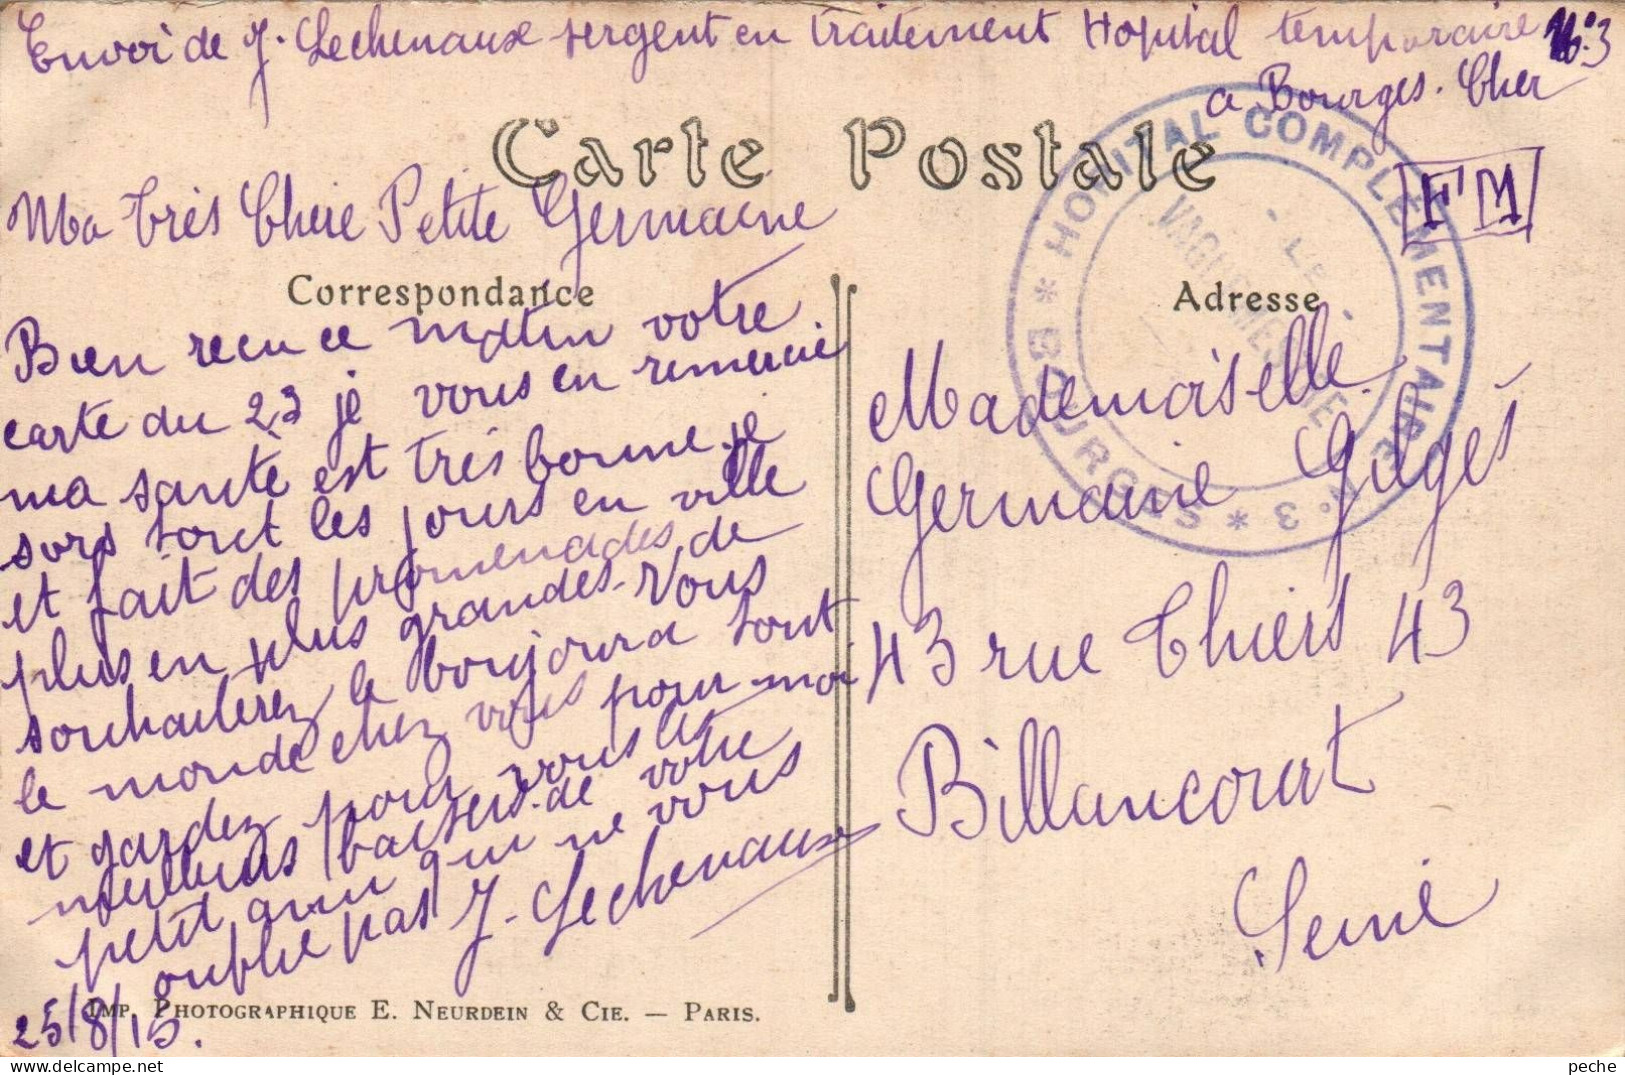 Envoi de J. Lechenaux sergent en traitement Hopital temporaire N°.3
a Bourges. Cher
Carte Postale
FM
Ma très Chère Petite Germaine
Correspondance
Bien recu ce matin votre
carte du 23 je vous en remercie
ma santé est très bonne je
sors tout les jours en ville
et fait des promenades de
plus en plus grandes. Vous
souhaiterez le bonjour a tout
le monde chez vous pour moi
et gardez pour vous les
meilleurs baisers. de votre
petit ami qui ne vous
oublie pas J. Lechenaux
25/8/15.
Imp. Photographique E. Neurdein & Cie. — Paris.
Adresse
Mademoiselle
Germaine
43 rue Thiers 43
Billancourt
Seine
* HOPITAL COMPLÉMENTAIRE N° 3 * BOURGES
LE
VAGUEMESTRE
peche